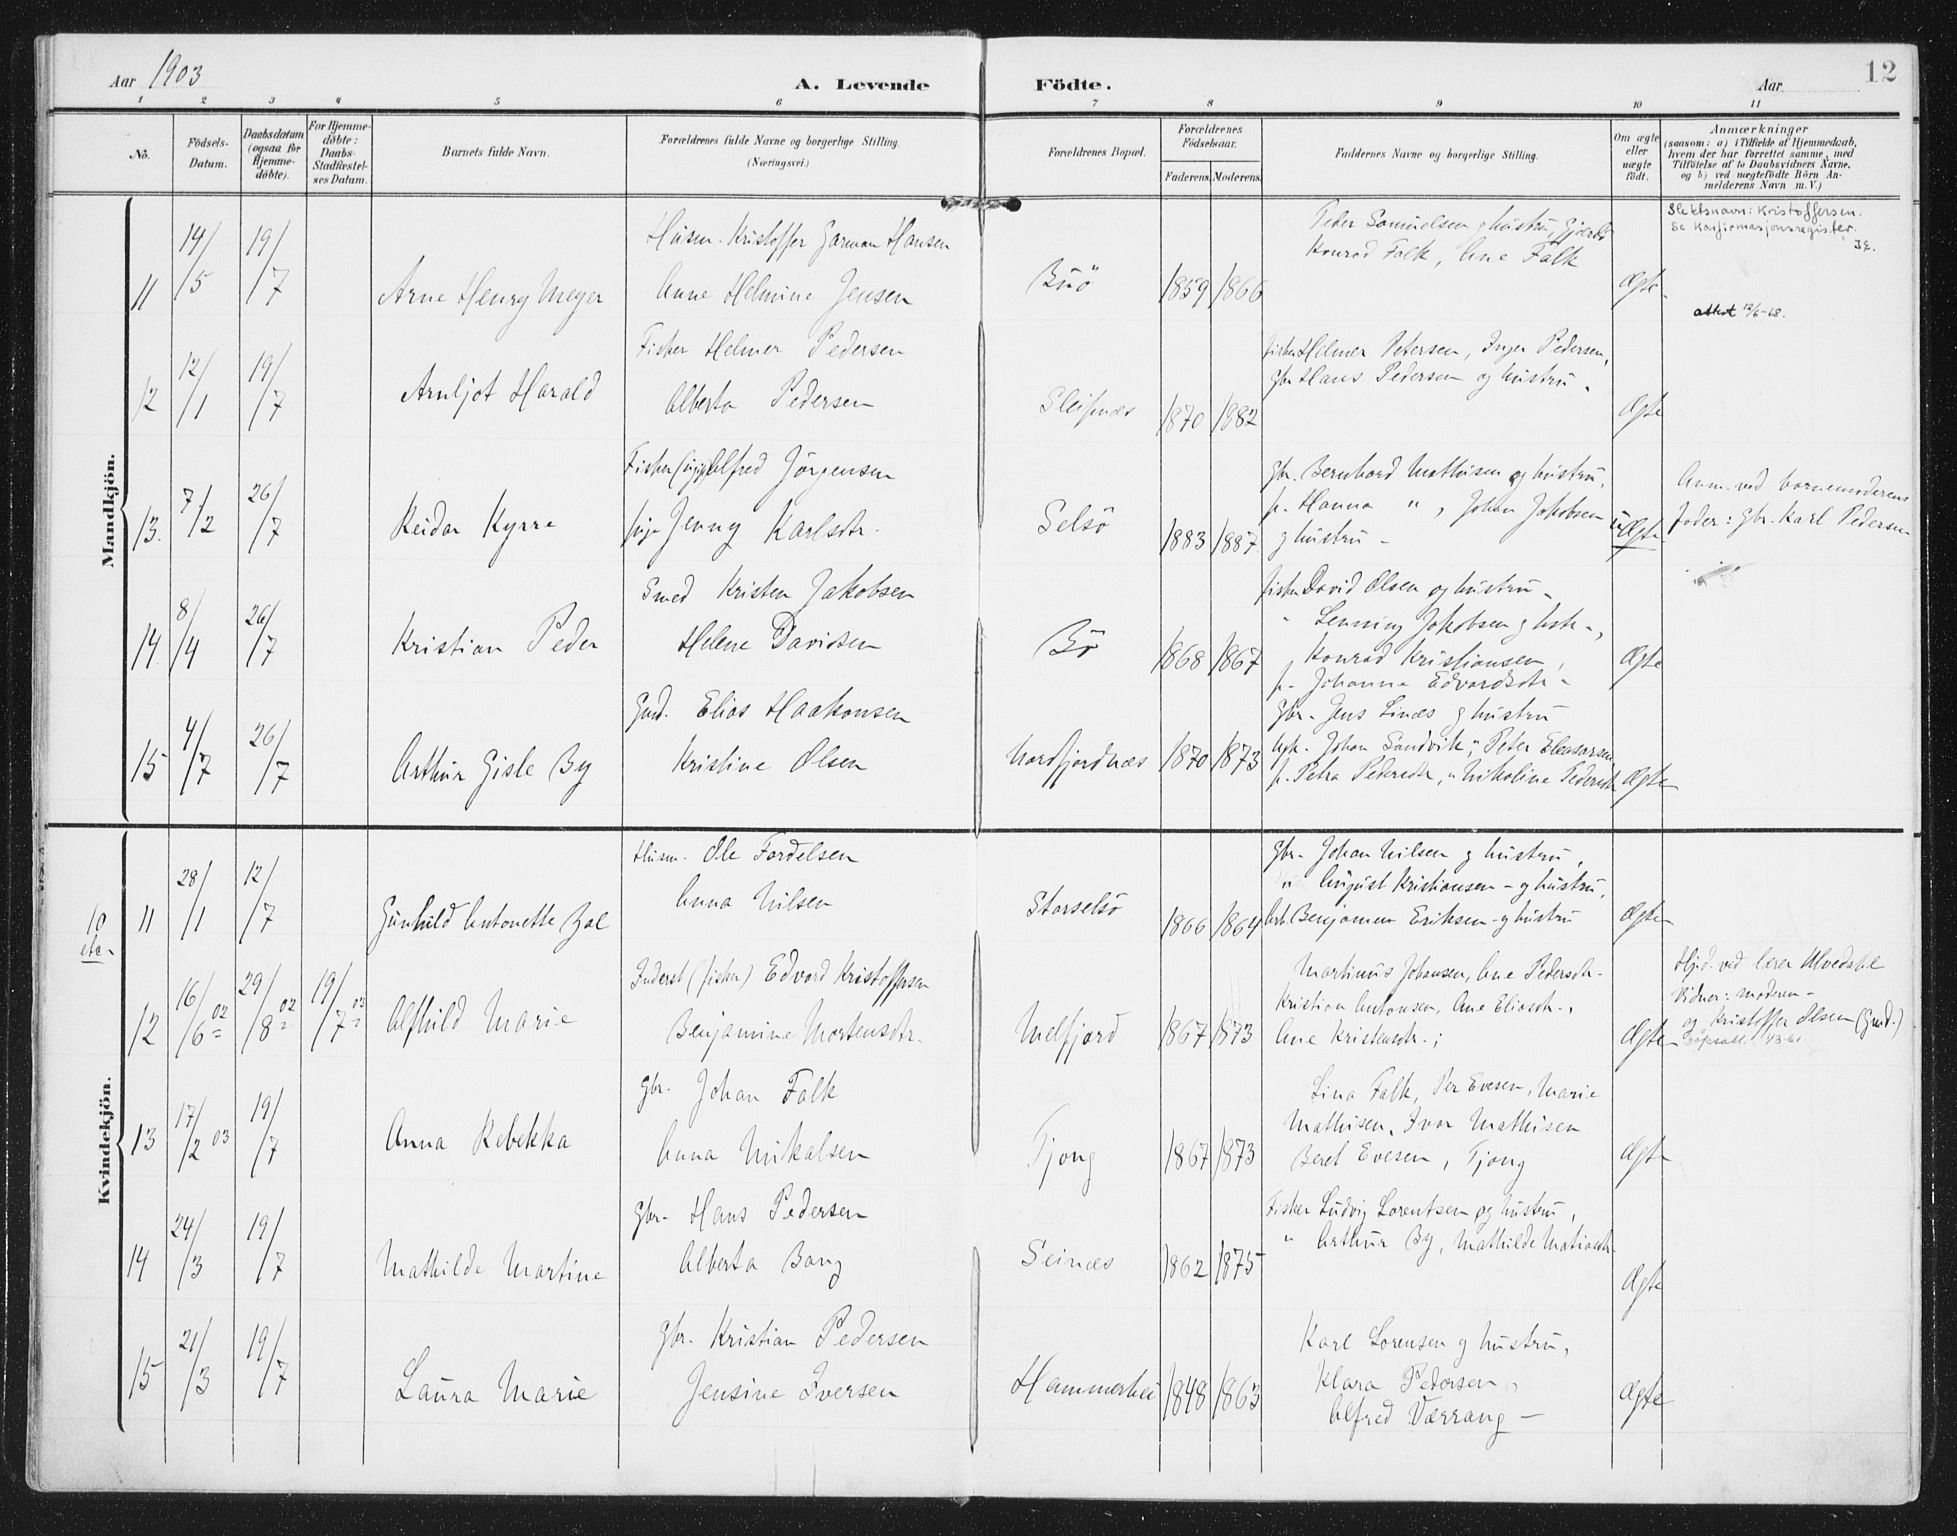 Aar 1903
A. Levende Födte.
Aar
12
1 2 3 4 5 6 7 8 9 10 11
No.
Födsels-
Datum.
Daabsdatum
(ogsaa for
Hjemme-
döbte).
For Hjemme-
döbte:
Daabs-
Stadfæstel-
ses Datum.
Barnets fulde Navn.
Forældrenes fulde Navne og borgerlige Stilling.
(Næringsvei.)
Forældrenes Bopæl.
Forældrenes
Födselsaar.
Faderens. Moderens.
Faddernes Navne og borgerlige Stilling.
Om ægte
eller
uægte
födt.
Anmærkninger
(saasom: a) i Tilfælde af Hjemmedaab,
hvem der har forrettet samme, med
Tilföielse af to Daabsvidners Navne,
og b) ved uægtefödte Börn An-
melderens Navn m.V.)
Mandkjön.
11 14/5 19/7 Arne Henry Meyer
Husm. Kristoffer Garman Hansen
Anne Helmine Jensen
Buö 1859 1866
Peder Samuelsen g hustru,
Konrad Falk, Ane Falk
Ægte
Slektsnavn: Kristoffersen.
Se Konfirmasjonsregister.
attest 12/6-68.
12 12/1 19/7 Arnljot Harald
Fisker Helmer Pedersen
Alberta Pedersen
Sleipnæs 1870 1882
fisker Helmer Petersen, Inger Pedersen,
Gbr Hans Pedersen og hustru.
Ægte
13. 7/2 26/7 Reidar Kyrre
Fisker (ugift) Alfred Jörgensen
pige Jenny Karlsdtr.
Selsö 1883 1887
Gbr. Bernhard Mathisen og hustru,
p. Hanna ", Johan Jakobsen
g hustru -
uÆgte
Anm. ved barnemoderens
fader: Gbr. Karl Pedersen
14 8/4 26/7 Kristian Peder
Smed Kristen Jakobsen
Helene Davidsen
Bö 1868 1867
fisker David Olsen og hustru -
" Henning Jakobsen g hstr -,
Konrad Kristiansen,
p. Johanna Edvardsdtr -
Ægte
15 4/7 26/7 Arthur Gisle By
Gmd. Elias Haakonsen
Kristine Olsen
Nordfjordnæs 1870 1873
Gbr. Jens Linæs g hustru
Johan Sandvik, " Peter Eleasarsen
p. Petra Pedersdtr, " Nikoline Pedersdtr
Ægte
Kvindekjön.
10
etc.
11 28/1 12/7 Gunhild Antonette
Husm. Ole Fordelsen
Anna Nilsen
Storselsö 1866 1864
Gbr. Johan Nilsen g hustru,
" August Kristiansen - og hustru,
Arb. Benjamin Eriksen - og hustru
Ægte
12 16/6 02 29/8 02 19/7 03 Alfhild Marie
Inderst (fisker) Edvard Kristoffersen
Benjamine Mortensdtr.
Melfjord 1867 1873
Martinus Johansen, Ane Pedersdtr.
Kristian Antonsen, Ane Eliasdtr.,
Ane Kristensdtr.;
Ægte
Hjd. ved lærer Ulvedahl
Vidner: moderen -
og Kristoffer Olsen (Gmd.)
13 17/2 03 19/7 Anna Rebekka
Gbr. Johan Falk
Anna Mikalsen
Tjong 1867 1873
Lina Falk, Per Evesen, Marie
Mathisen, Ivar Mathisen
Beret Evesen, Tjong
Ægte
14 24/3 19/7 Mathilde Martine
Gbr. Hans Pedersen
Alberta Bang
Seinæs 1862 1875
Fisker Ludvig Lorentsen og hustru,
" Arthur By, Mathilde Matiasdtr.
Ægte
15 21/3 19/7 Laura Marie
Gbr. Kristian Pedersen
Jensine Iversen
Hammerhei 1848 1863
Karl Lorensen g hustru,
Klara Pedersen,
Alfred Værrang -
Ægte